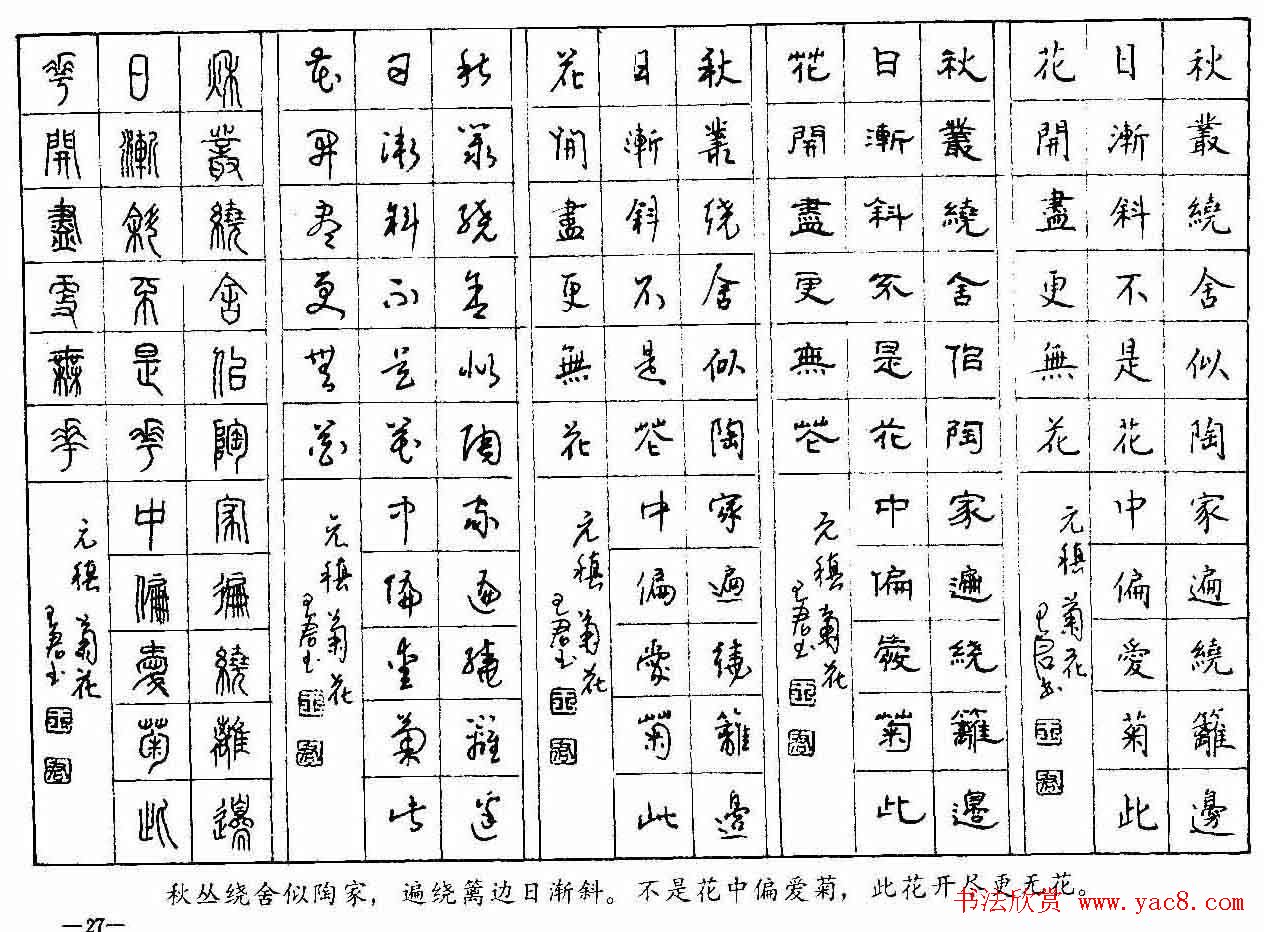 秋叢繞舍似陶家遍繞籬邊
日漸斜不是花中偏愛菊此
花開盡更無花
元稹菊花
王君书
秋叢繞舍似陶家遍繞籬邊
日漸斜不是花中偏愛菊此
花開盡更無花
元稹菊花
王君书
秋叢绕舍似陶家遍繞籬邊
日漸斜不是花中偏愛菊此
花開盡更無花
元稹菊花
王君书
秋叢繞舍似陶家遍繞籬邊
日漸斜不是花中偏愛菊此
花開盡更無花
元稹菊花
王君书
秌叢繞舍似陶家遍繞籬邊
日漸斜不是華中偏愛菊此
華開盡更無華
元稹菊花
王君书
秋丛绕舍似陶家，遍绕篱边日渐斜。不是花中偏爱菊，此花开尽更无花。
书法欣赏 www.yac8.com
—27—